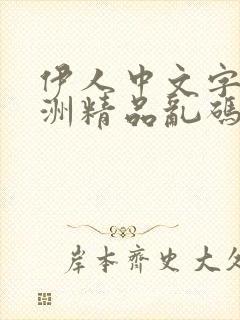 伊人中文字
洲精品亂碼
岸本齊史大久